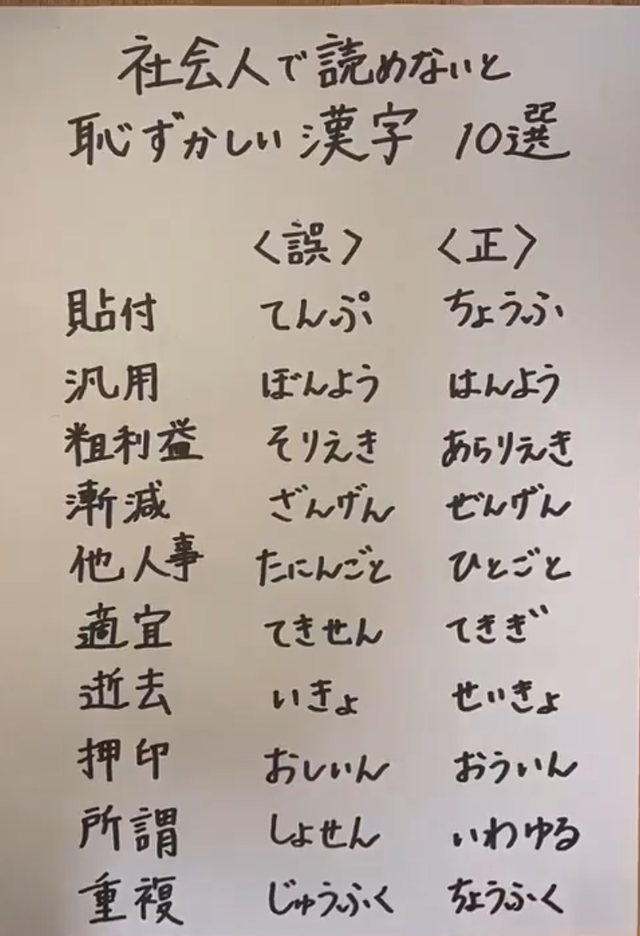 社会人で読めないと
恥ずかしい漢字 10選
〈誤〉 〈正〉
貼付 てんぷ ちょうふ
汎用 ぼんよう はんよう
粗利益 そりえき あらりえき
漸減 ざんげん ぜんげん
他人事 たにんごと ひとごと
適宜 てきせん てきぎ
逝去 いきょ せいきょ
押印 おしいん おういん
所謂 しょせん いわゆる
重複 じゅうふく ちょうふく